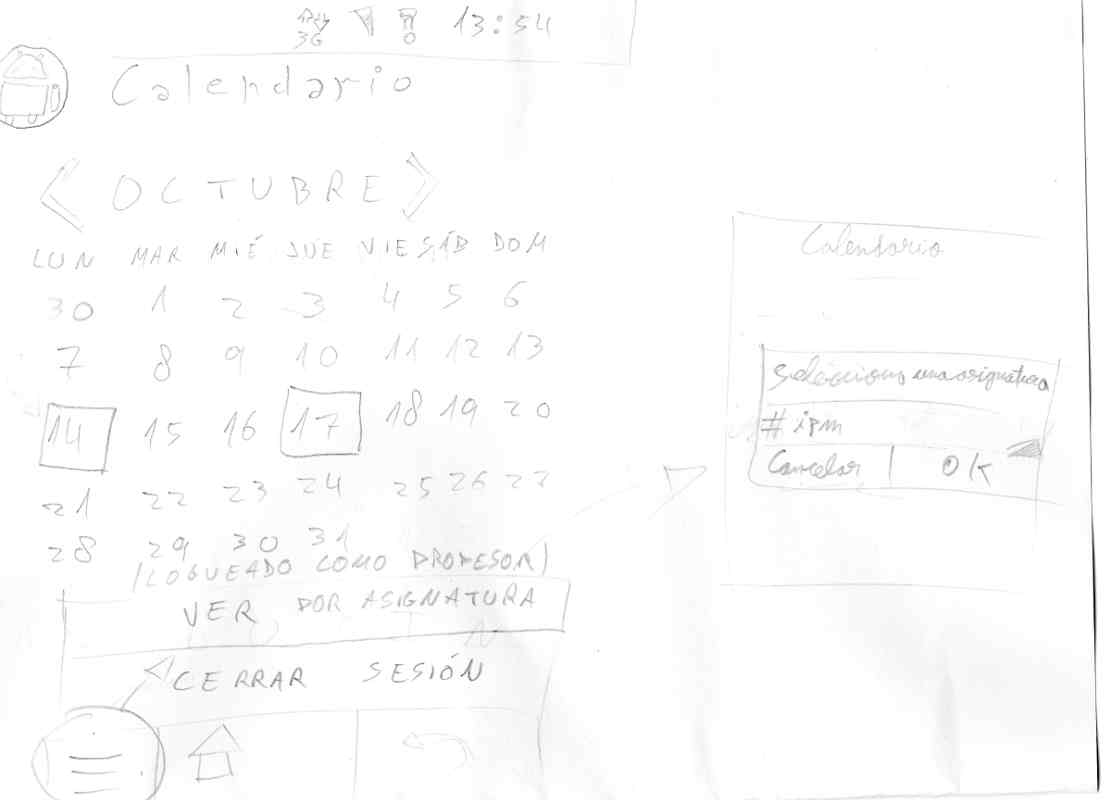 3G 0 13:54
Calendario
< OCTUBRE >
LUN MAR MIÉ JUE VIE SÁB DOM
30 1 2 3 4 5 6
7 8 9 10 11 12 13
14 15 16 17 18 19 20
21 22 23 24 25 26 27
28 29 30 31
(LOGUEADO COMO PROFESOR)
VER POR ASIGNATURA
CERRAR SESIÓN
Calendario
Selecciona una asignatura
# ipm
Cancelar | OK